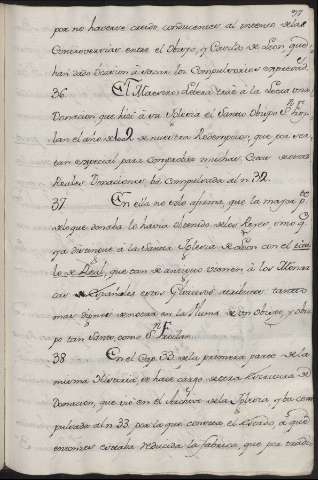 por no haverse creido conducentes al intento de las
Controversias entre el Obispo, y Cavildo de Leon que
han dado ocasion à sacar los Compulsorios
36. El Maestro Lobera trahe à la Letra una
Donacion que hizò à su Iglesia el Santo Obispo Dn. Froy-
lan el año de 902 de nuestra Redempcion, que por
tan especial para comprobar muchas Cosas de otras
Reales Donaciones, và Compulsada al n. 32.
37. En ella no solo afirma, que la mayor pte.
de lo que donaba lo havia obtenido de los Reyes, sino q.
ya distingue à la Santa Iglesia de Leon con el titu-
lo de Real, que tan de antiguo vienen à los Monar-
cas Españoles estos Gloriosos atributos tanto
mas dignos de notar en la Pluma de un Obispo, y obis-
po tan Santo, como Sn. Froilan.
38. En el Cap. 33. de la primera parte de la
misma Historia se hace cargo de otra Escritura de
Donacion, que viò en el Archivo de la Iglesia y và com-
pulsada al n. 33. por la que consta el estado, à que
entonces estaba reducida la fabrica, que por